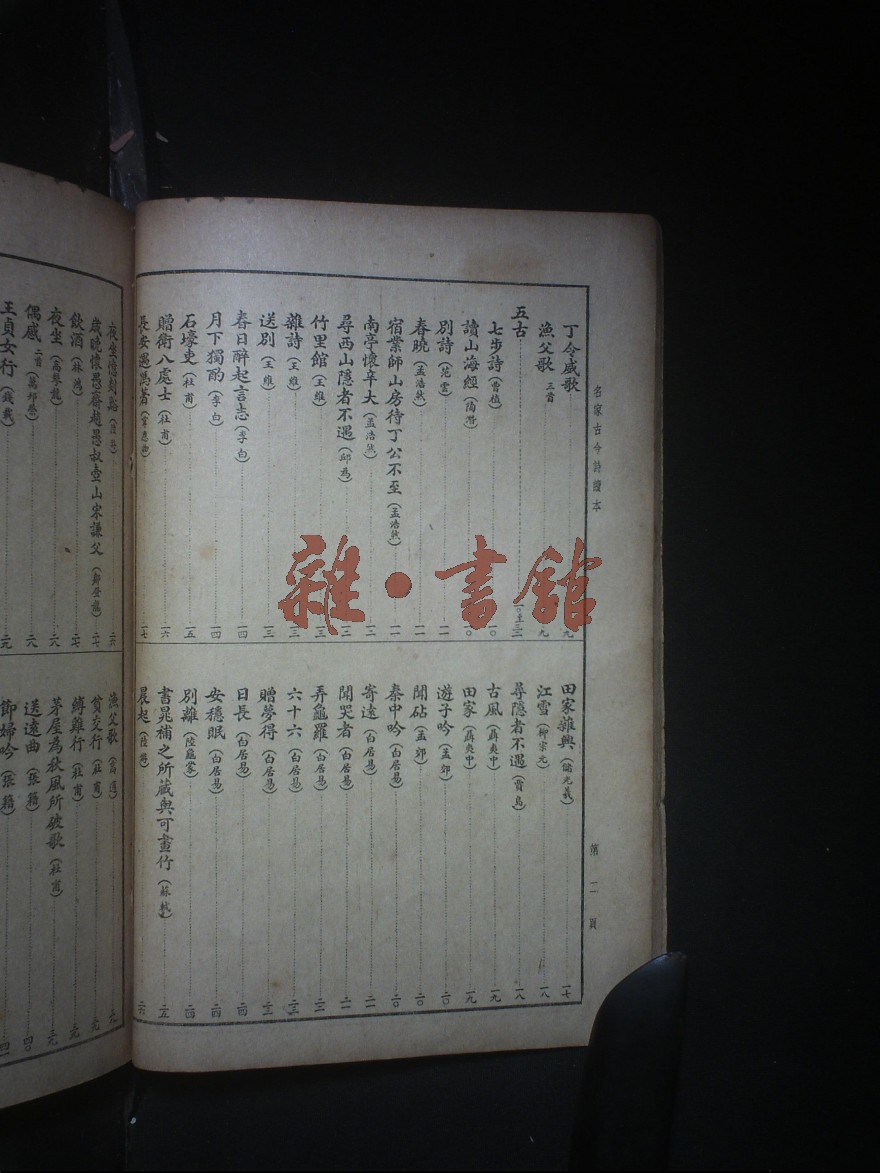 名家古今詩讀本
第二頁
丁令威歌 九
漁父歌 三首 九
五古 一〇至三二
七步詩 (曹植) 一〇
讀山海經 (陶潛) 一〇
別詩 (范雲) 一一
春曉 (孟浩然) 一一
宿業師山房待丁公不至 (孟浩然) 一一
南亭懷辛大 (孟浩然) 一二
尋西山隱者不遇 (邱為) 一二
竹里館 (王維) 一三
雜詩 (王維) 一三
送別 (王維) 一三
春日醉起言志 (李白) 一四
月下獨酌 (李白) 一四
石壕吏 (杜甫) 一五
贈衛八處士 (杜甫) 一六
長安遇馮著 (韋應物) 一七
田家雜興 (儲光羲) 一七
江雪 (柳宗元) 一八
尋隱者不遇 (賈島) 一八
古風 (聶夷中) 一九
田家 (聶夷中) 一九
遊子吟 (孟郊) 二〇
聞砧 (孟郊) 二〇
秦中吟 (白居易) 二〇
寄遠 (白居易) 二一
聞哭者 (白居易) 二一
弄龜羅 (白居易) 二二
六十六 (白居易) 二三
贈夢得 (白居易) 二三
日長 (白居易) 二四
安穩眠 (白居易) 二四
別離 (陸龜蒙) 二四
書晁補之所藏與可畫竹 (蘇軾) 二五
晨起 (陸游) 二六
夜坐憶剡溪 二六
歲晚懷思齋趙愚叔壺山宋謙父 二七
飲酒 (林鴻) 二七
夜坐 (高攀龍) 二八
偶感 二首 二八
王貞女行 (錢載) 二九
漁父歌 (高適)
貧交行 (杜甫)
縛雞行 (杜甫)
茅屋為秋風所破歌 (杜甫)
送遠曲 (張籍) 四〇
節婦吟 (張籍) 四一
雜·書館